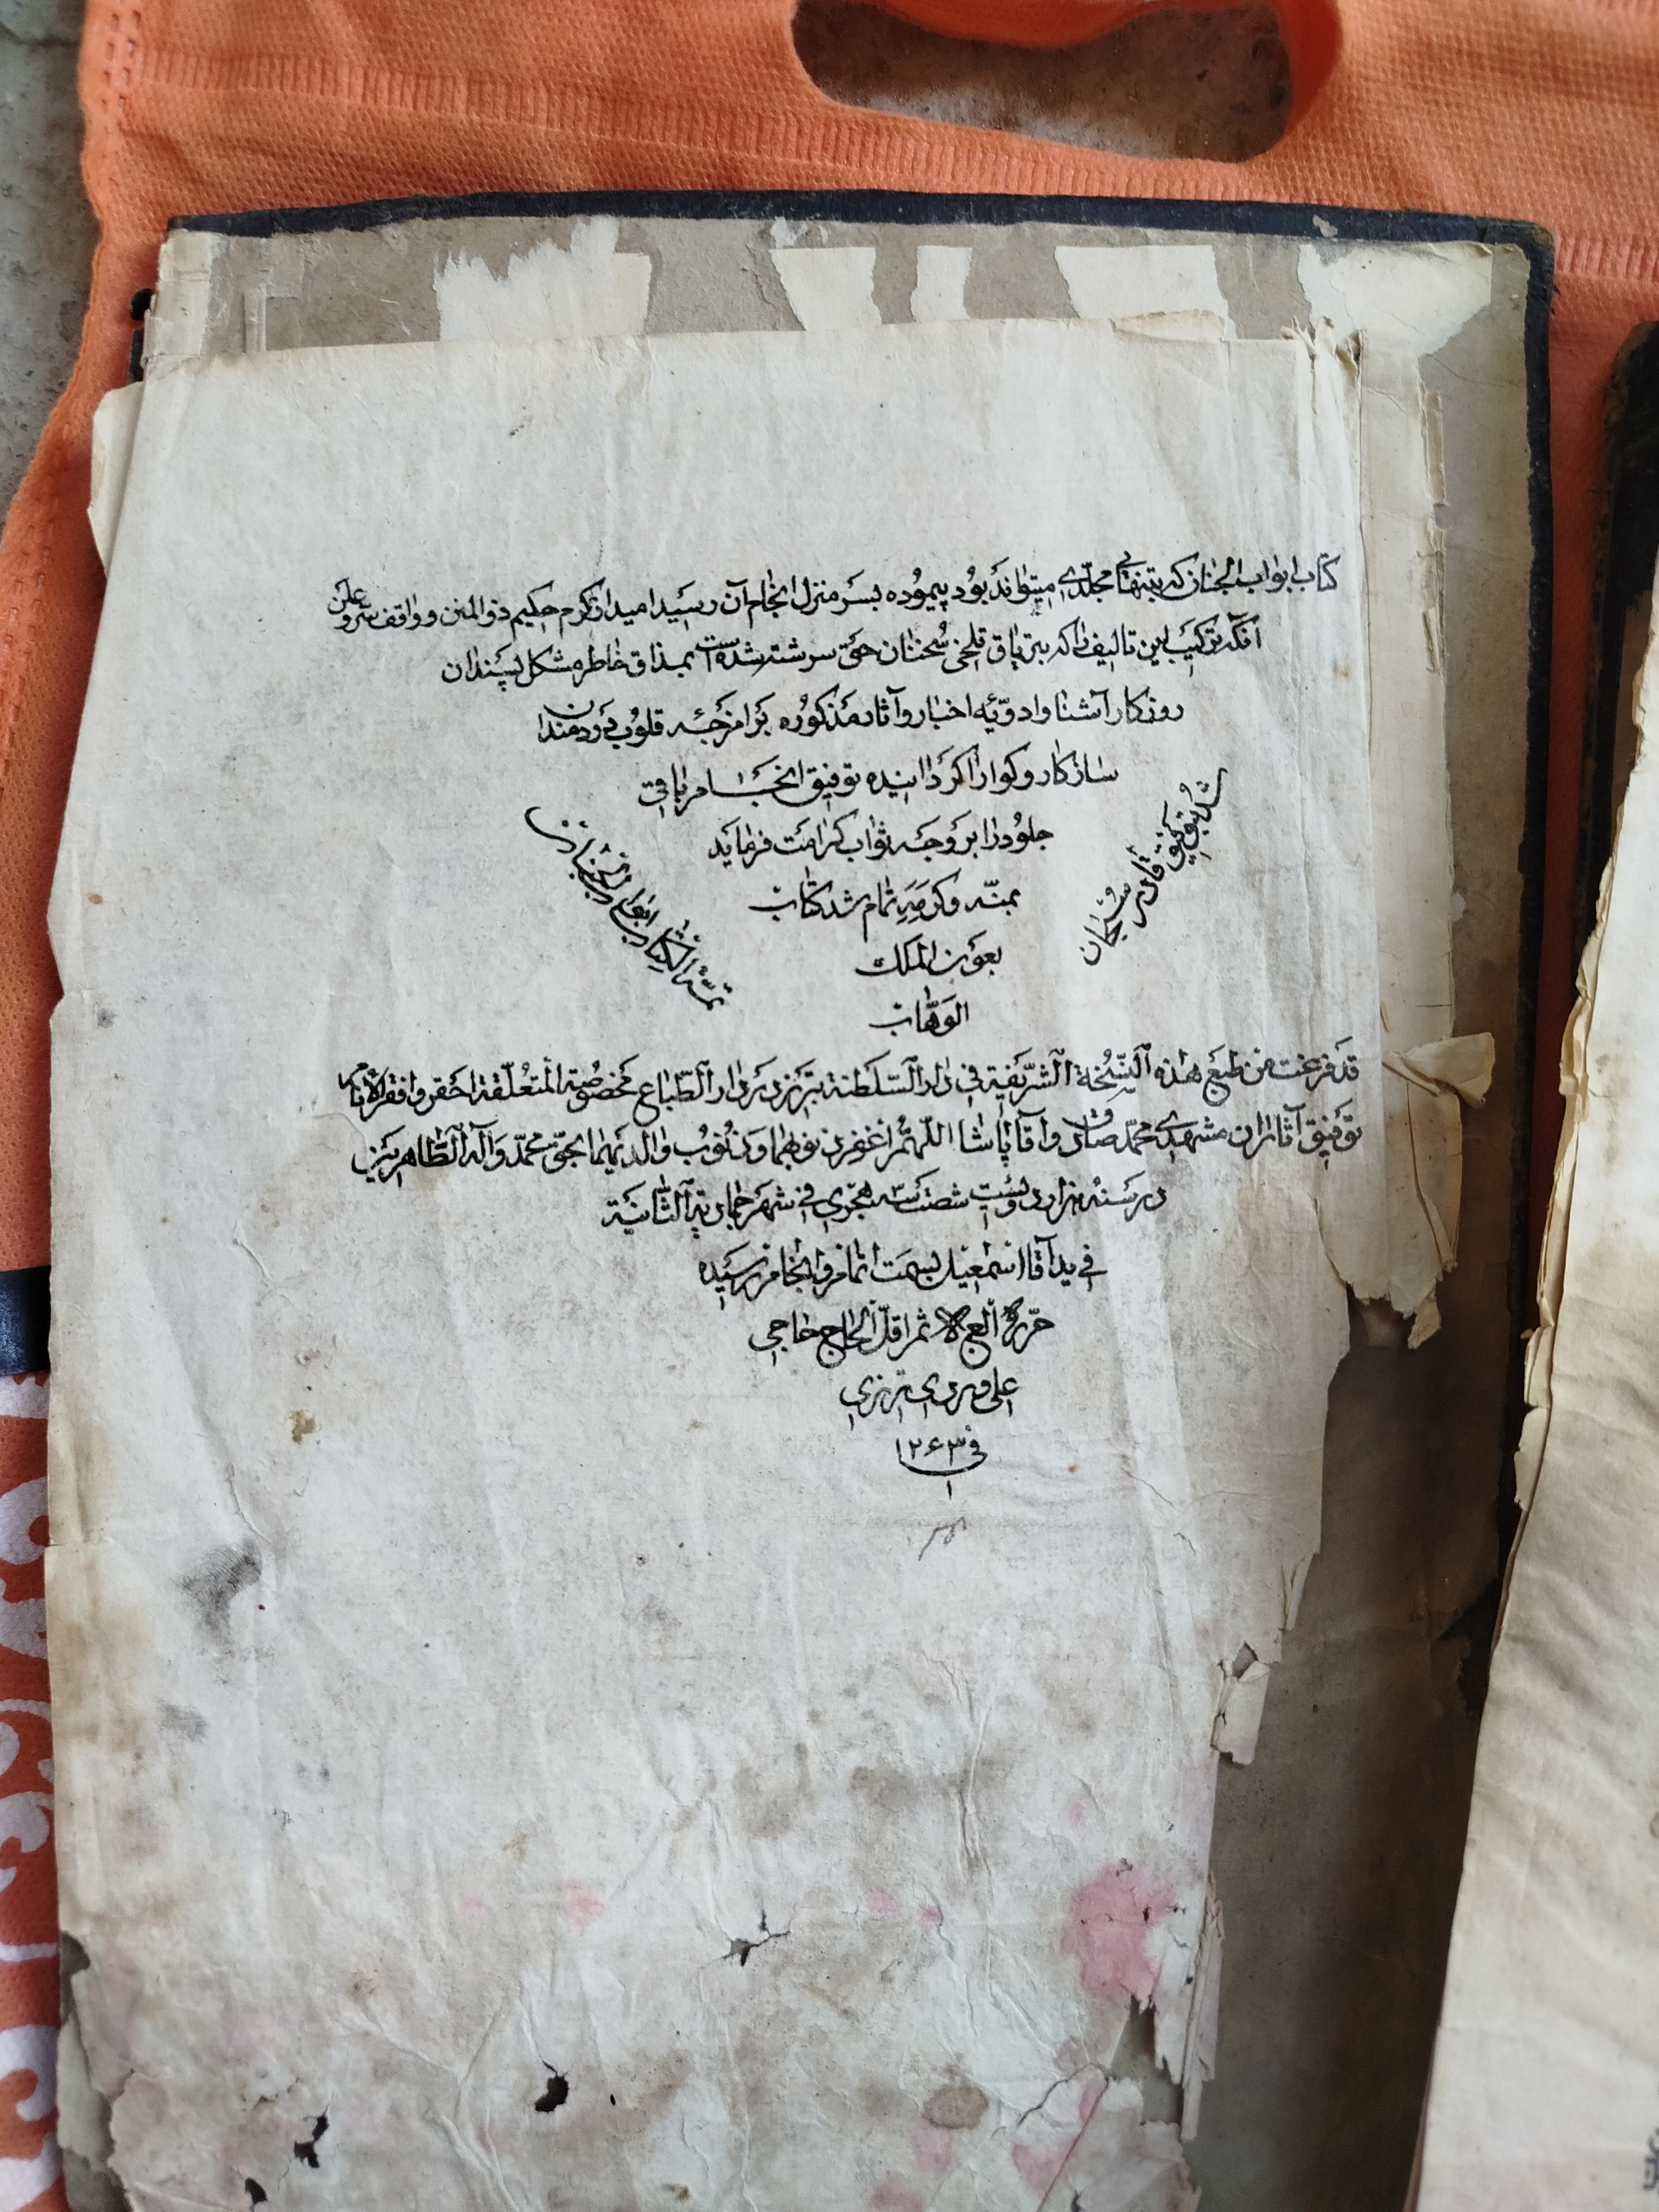 کتاب ابواب الجنان که بتنهائی مجلّدی میتواند بود پیموده بسر منزل انجام آن رسید امید از کرم حکیم ذو المنن و واقف سرّ و علن
آنکه ترکیب این تالیف را که بتریاق قلخی سخنان حق سرشته شده است بمذاق خاطر مشکل پسندان
روزکار آشنا و ادویه اخبار و آثار مذکوره بر امزجه قلوب دردمندان
سازکار و کوارا کردانیده توفیق انجام باقی
جلود را بر وجه ثواب کرامت فرماید
بمنّه وکرمه تمام شد کتاب
بعون الملک
الوهاب
شد بتوفیق قادر سبحان
تمت الکتاب
قد فرغت من طبع هذه النسخة الشریفة فی دار السلطنة تبریز در دار الطباع مخصوصة المتعلقة احقر و افقر الانام
توفیق آثاران مشهدی محمد صادق و آقا پاشا اللهم اغفر ذنوبهما و ذنوب والدیهما بحق محمد و آله الطاهرین
در سنه هزار دویست شصت سه هجری فی شهر جمادیة الثانیة
فی ید آقا اسمعیل بسمت اتمام و انجام رسیده
حرّره الاثم اقل الحاج حاجی
علی ویردی تبریزی
فی ۱۲۶۳